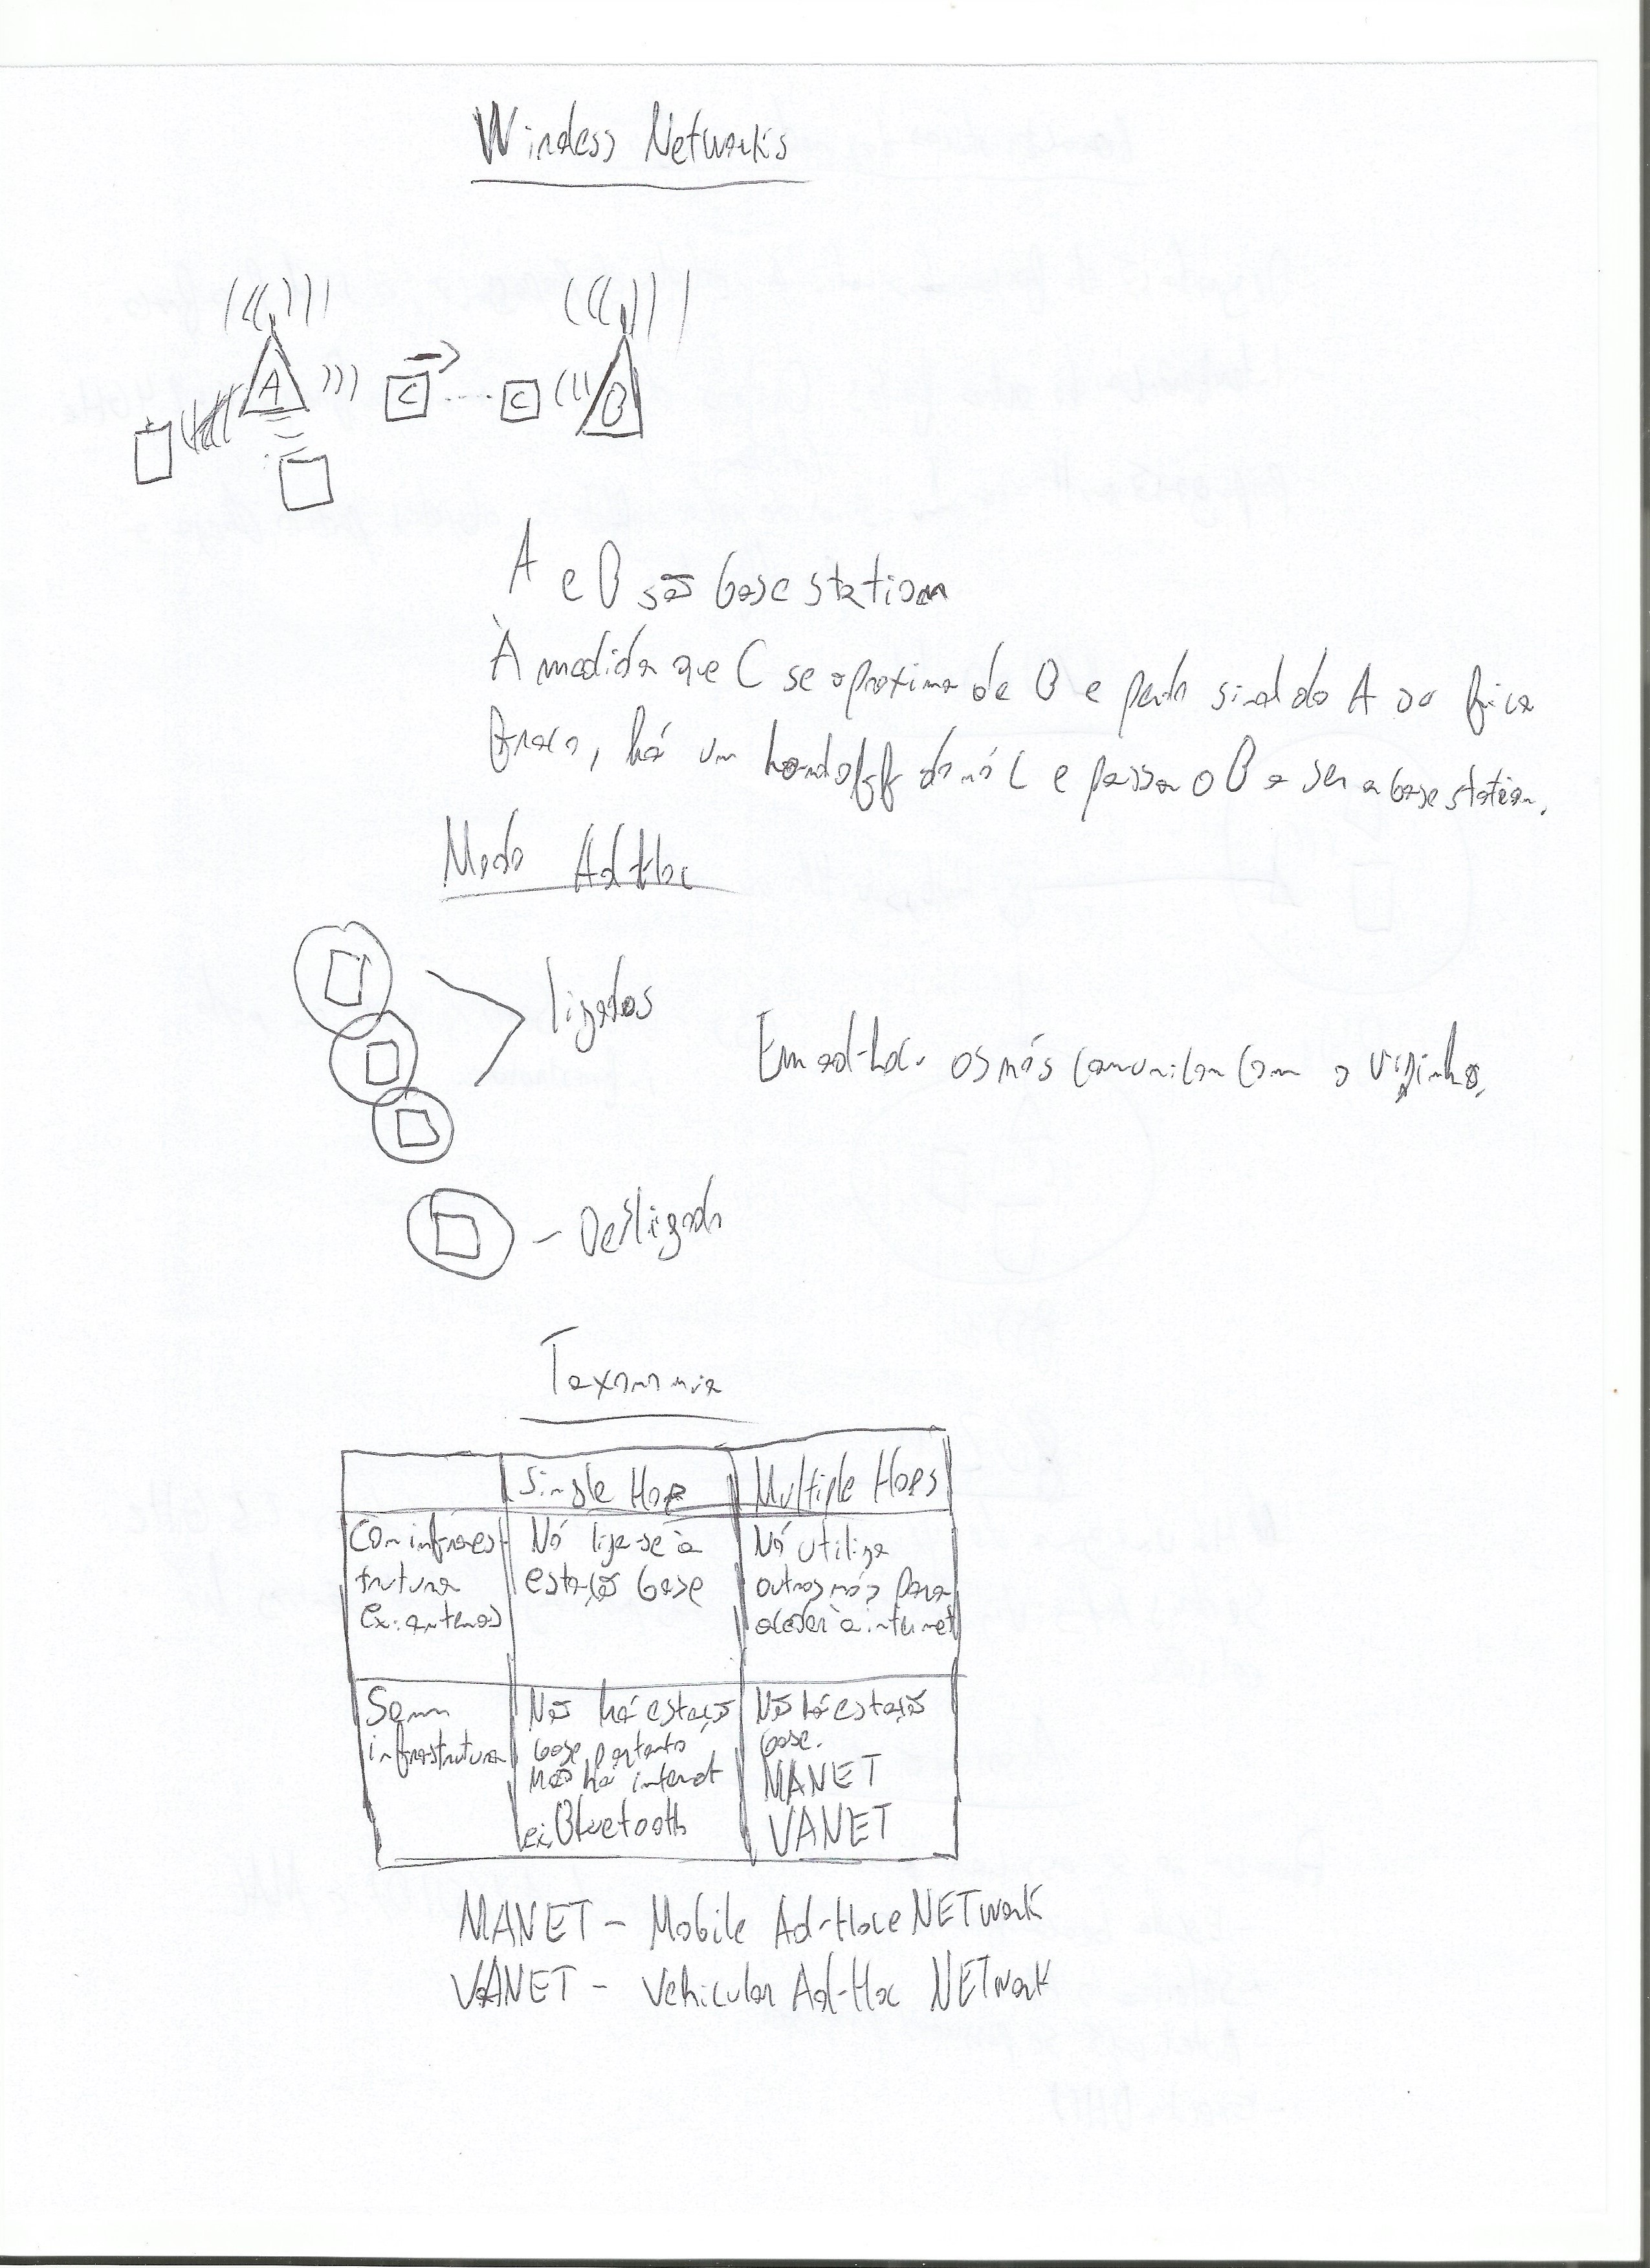 Wireless Networks
A
C
C
B
A e B são base station
À medida que C se aproxima de B e perde sinal do A ou fica
fraco, há um handoff do nó C e passa o B a ser a base station.
Modo Ad Hoc
ligados
Em ad-hoc os nós comunicam com o vizinho.
- Desligado
Taxonomia
Single Hop
Multiple Hops
Com infraest
trutura
Ex: antenas
Nó liga-se à
estação base
Nó utiliza
outros nós para
aceder à internet
Sem
infrastrutura
Não há estação
base, portanto
não há internet
ex: Bluetooth
Não há estação
base.
MANET
VANET
MANET - Mobile Ad-Hoce NETwork
VANET - Vehicular Ad-Hoc NETwork